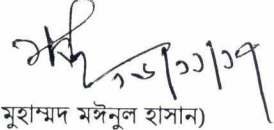 ১৬/১১/১৭
মুহাম্মদ মঈনুল হাসান)